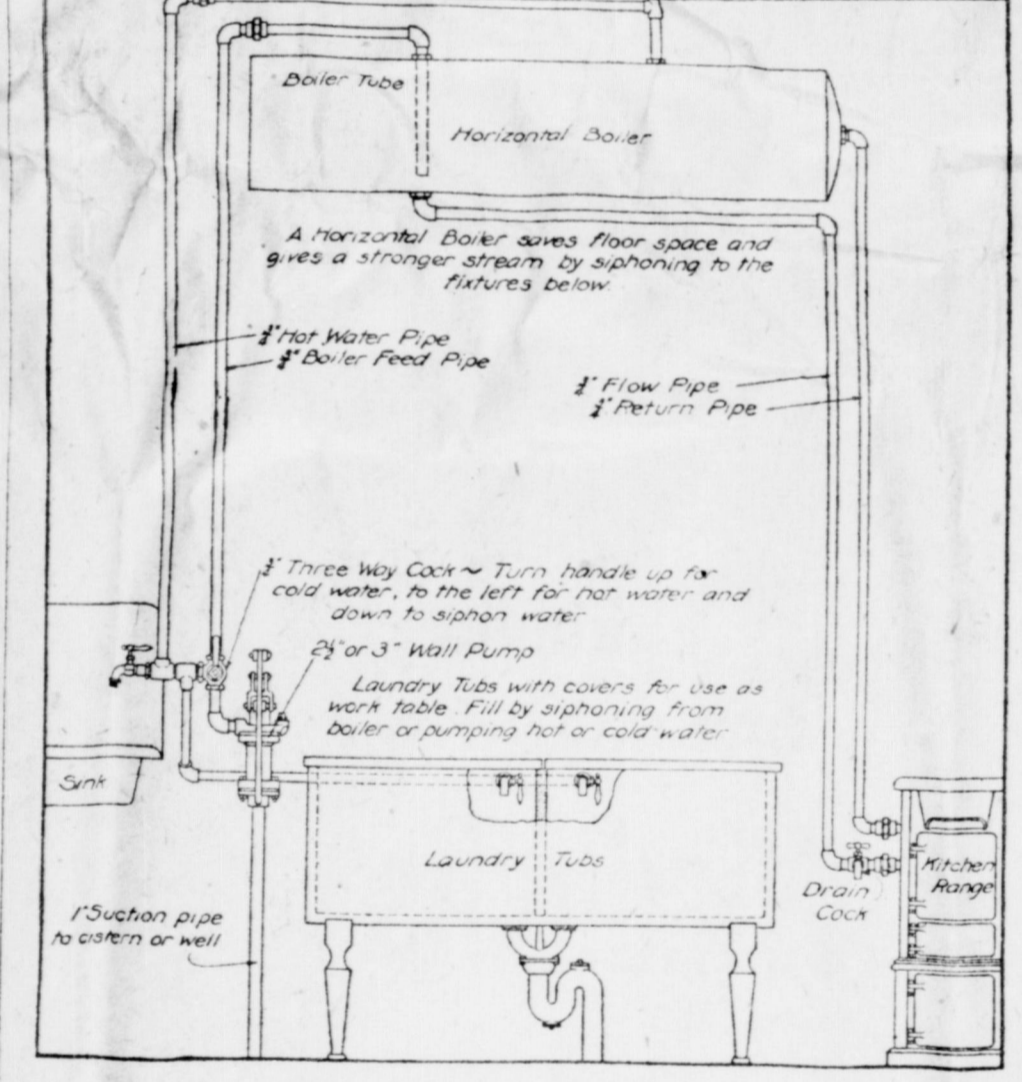 Boiler Tube
Horizontal Boiler
A Horizontal Boiler saves floor space and
gives a stronger stream by siphoning to the
fixtures below.
Hot Water Pipe
Boiler Feed Pipe
Flow Pipe
Return Pipe
Three Way Cock ~ Turn handle up for
cold water, to the left for hot water and
down to siphon water
2½" or 3" Wall Pump
Laundry Tubs with covers for use as
work table. Fill by siphoning from
boiler or pumping hot or cold water
Sink
Laundry Tubs
Kitchen
Range
Drain
Cock
1" Suction pipe
to cistern or well